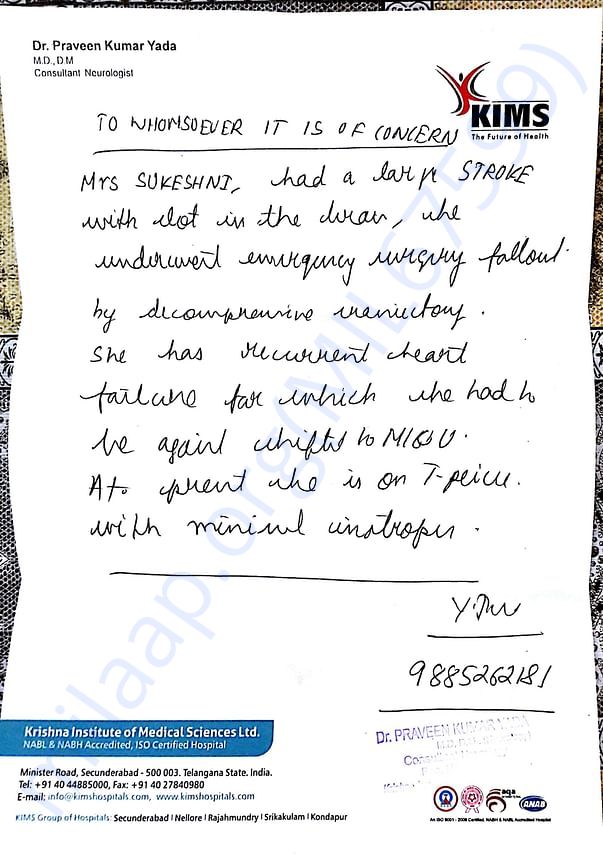 Dr. Praveen Kumar Yada
M.D., D.M
Consultant Neurologist
KIMS
The Future of Health
TO WHOMSOEVER IT IS OF CONCERN
Mrs SUKESHNI, had a large STROKE
with clot in the brain, she
underwent emergency surgery
by decompressive craniectomy.
She has recurrent heart
failure for which she had to
be again shifted to
At present she is on T-peice.
with minimal inotropes.
9885262181
Dr. PRAVEEN KUMAR YADA
Krishna Institute of Medical Sciences Ltd.
NABL & NABH Accredited, ISO Certified Hospital
Minister Road, Secunderabad - 500 003. Telangana State. India.
Tel: +91 40 44885000, Fax: +91 40 27840980
E-mail: info@kimshospitals.com, www.kimshospitals.com
KIMS Group of Hospitals: Secunderabad | Nellore | Rajahmundry | Srikakulam | Kondapur
aqa
ANAB
An ISO 9001 - 2008 Certified, NABH & NABL Accredited Hospital
milaap.org(MIL67599)